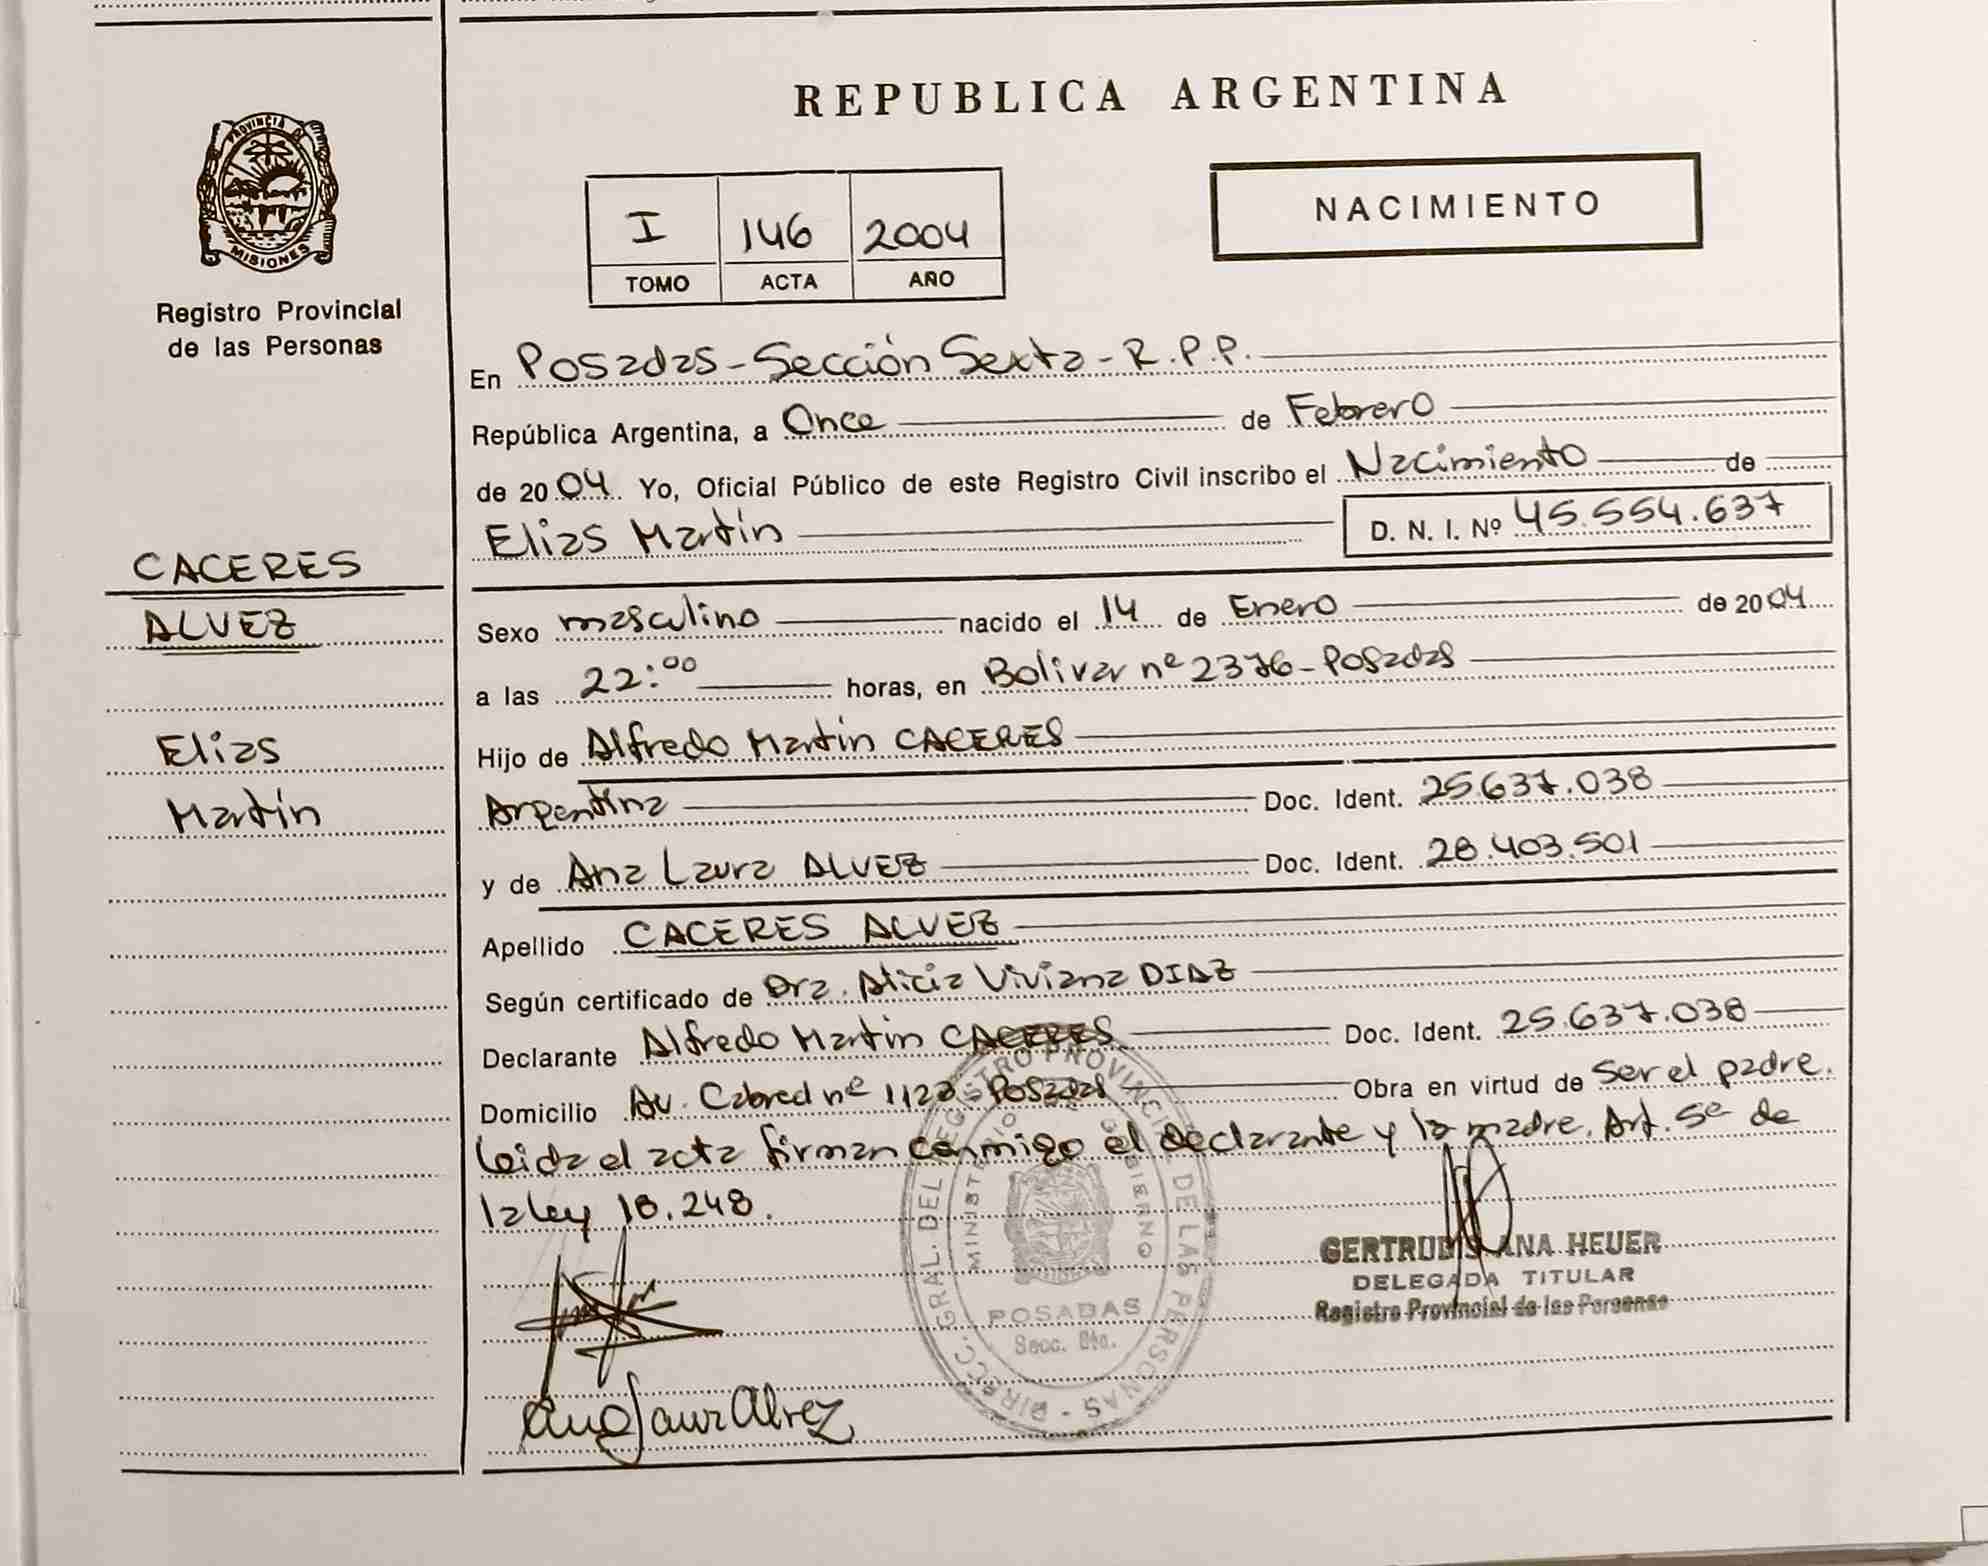 REPUBLICA ARGENTINA
PROVINCIA DE
MISIONES
Registro Provincial
de las Personas
I 146 2004
TOMO ACTA AÑO
NACIMIENTO
En Posadas - Sección Sexta - R.P.P.
República Argentina, a Once de Febrero
de 2004 Yo, Oficial Público de este Registro Civil inscribo el Nacimiento de
Elias Martín D. N. I. Nº 45.554.637
CACERES
ALVEZ
Elias
Martín
Sexo masculino nacido el 14 de Enero de 2004
a las 22:00 horas, en Bolivar nº 2376 - Posadas
Hijo de Alfredo Martín CACERES
Argentina Doc. Ident. 25.637.038
y de Ana Laura ALVEZ Doc. Ident. 28.403.501
Apellido CACERES ALVEZ
Según certificado de Dra. Alicia Viviana DIAZ
Declarante Alfredo Martín CACERES Doc. Ident. 25.637.038
Domicilio Av. Cabred nº Posadas Obra en virtud de ser el padre.
Leida el acta firman conmigo el declarante y la madre. Art. 5º de
la ley 18.248.
DIRECC. GRAL. DEL REGISTRO PROVINCIAL DE LAS PERSONAS
MINISTERIO DE GOBIERNO
POSADAS
Secc. 6ta.
GERTRUDIS ANA HEUER
DELEGADA TITULAR
Registro Provincial de las Personas
Ana Laura Alvez